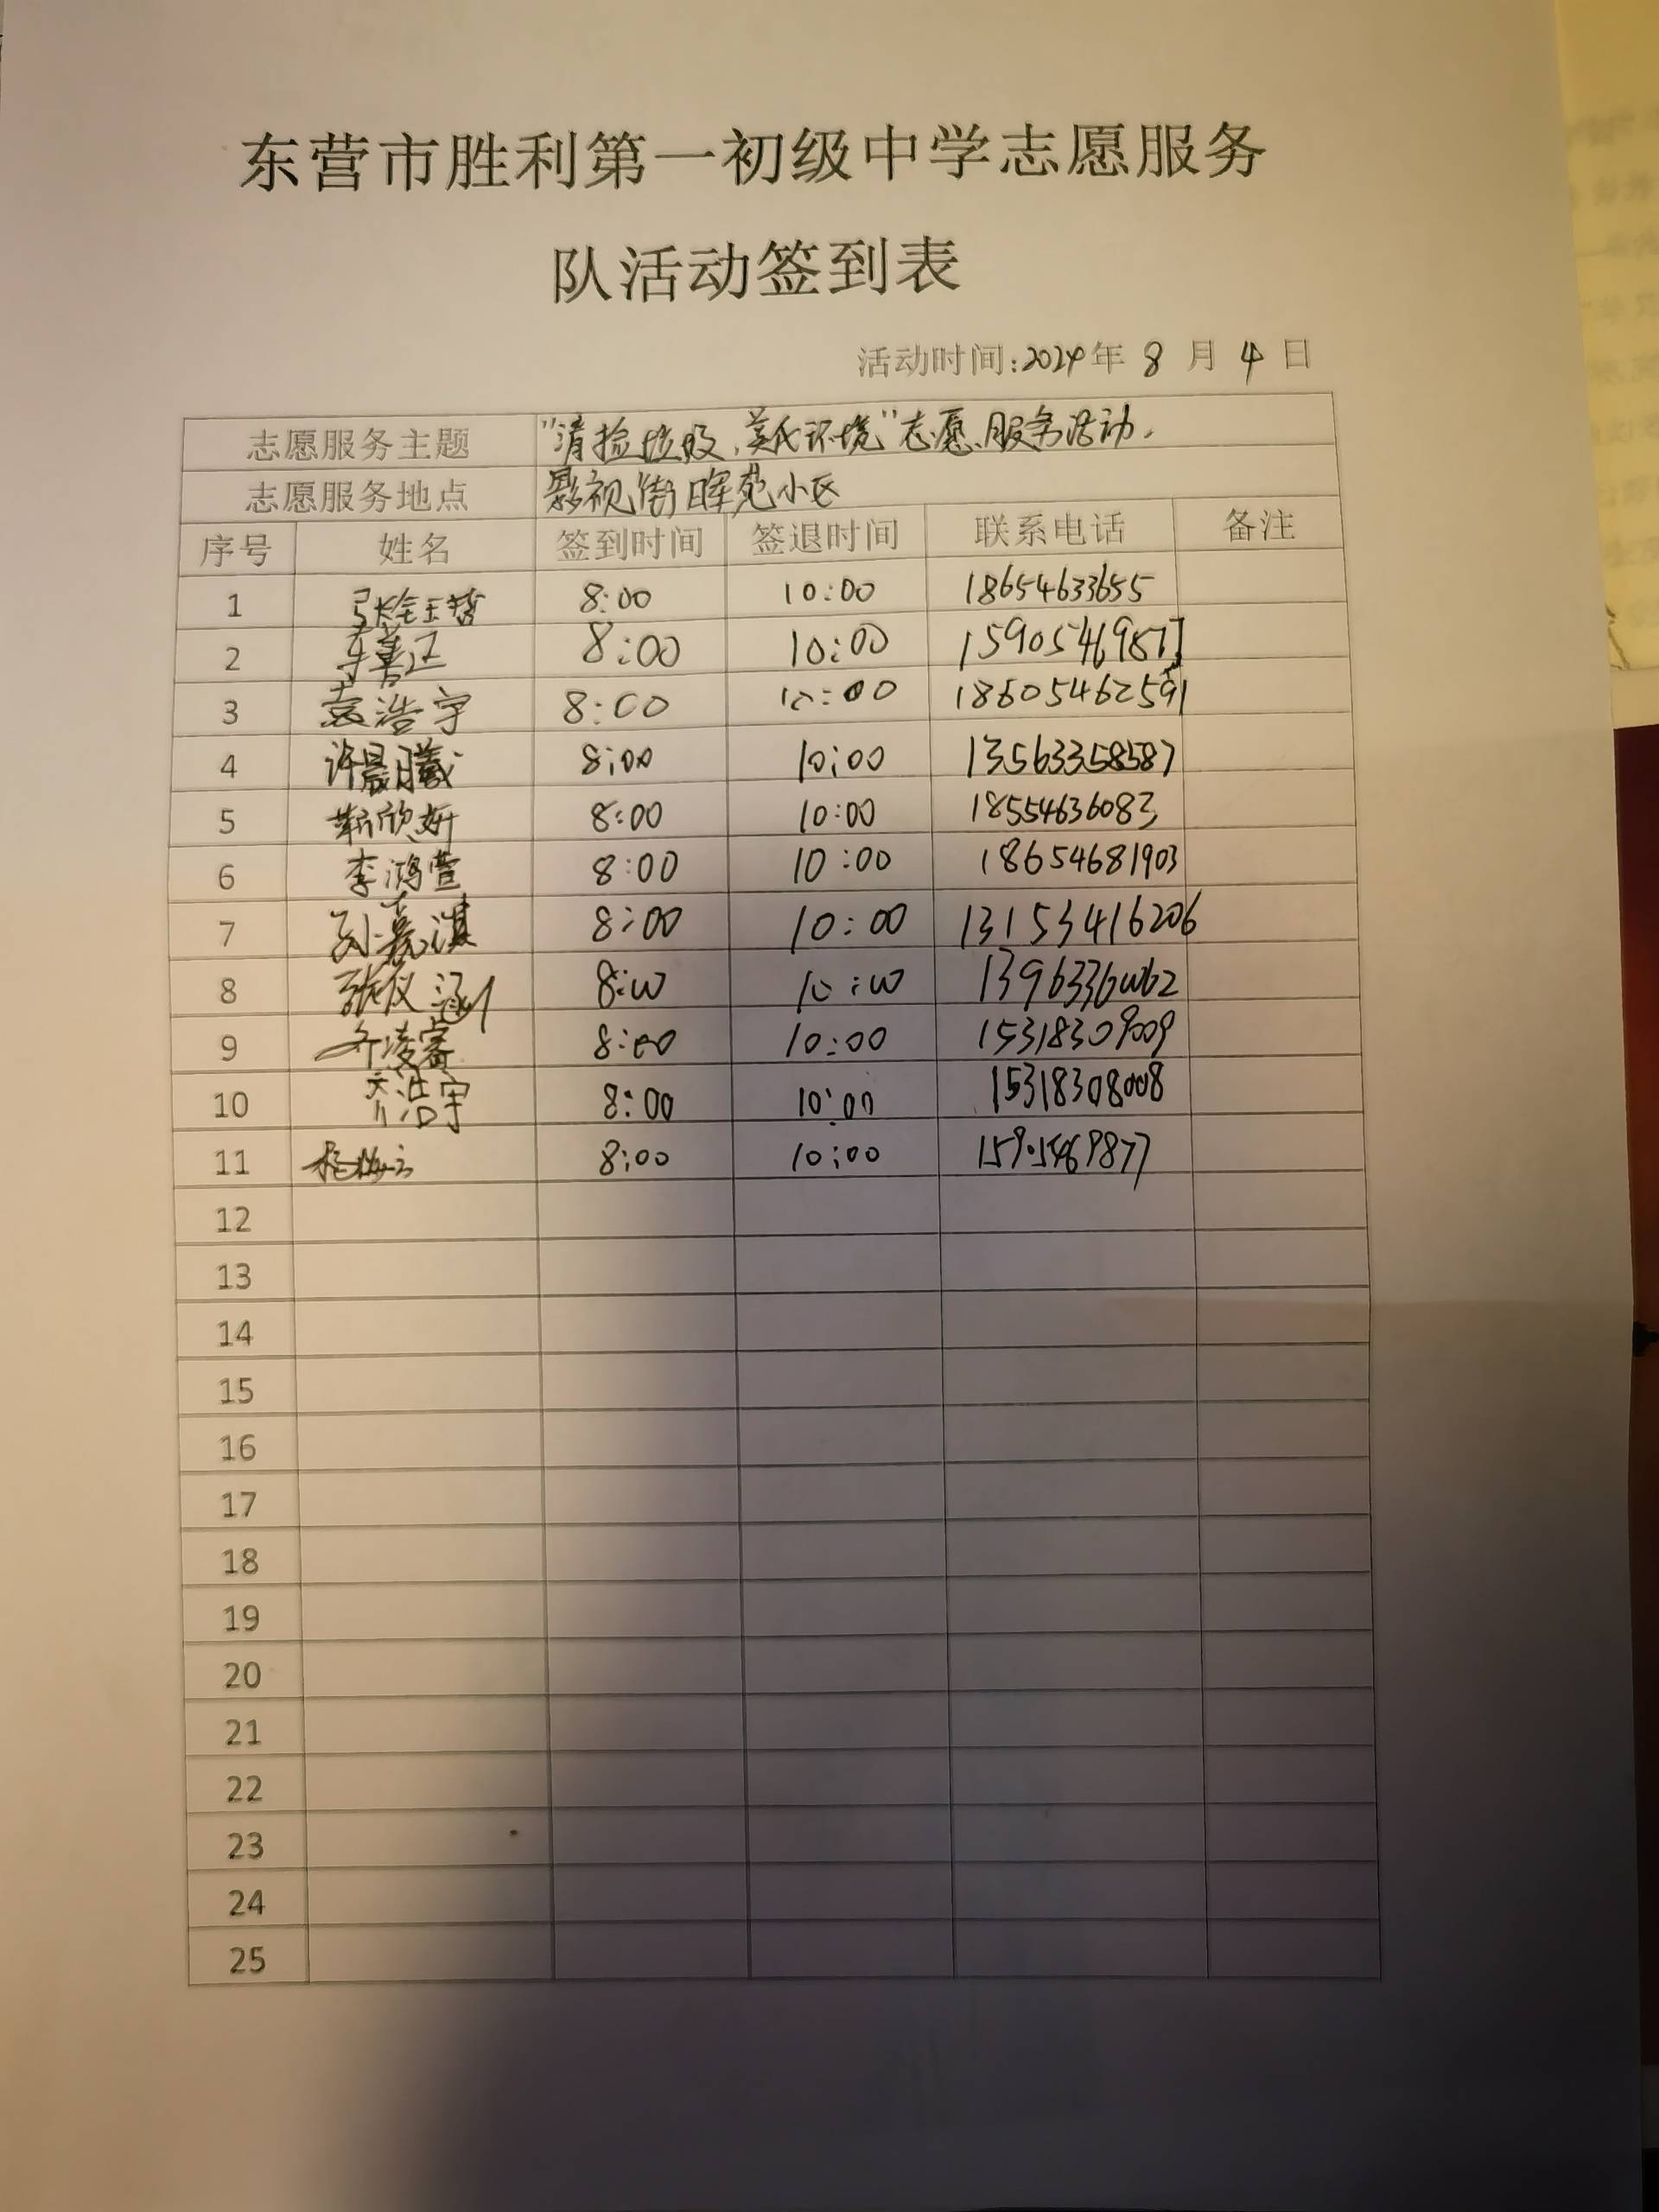 东营市胜利第一初级中学志愿服务
队活动签到表
活动时间:2024年 8 月 4 日
志愿服务主题 "清捡垃圾,美化环境"志愿服务活动.
志愿服务地点 影视街晖苑小区
序号 姓名 签到时间 签退时间 联系电话 备注
1 8:00 10:00 18654633655
2 8:00 10:00
3 袁浩宇 8:00 10:00 18605462591
4 许晨曦 8:00 10:00 13563358587
5 靳欣妍 8:00 10:00 18554636083
6 李鸿萱 8:00 10:00 18654681903
7 孙嘉淇 8:00 10:00 13153416206
8 张仪涵 8:00 10:00
9 齐凌睿 8:00 10:00 15318309009
10 齐浩宇 8:00 10:00 15318308008
11 8:00 10:00 15905469877
12
13
14
15
16
17
18
19
20
21
22
23
24
25